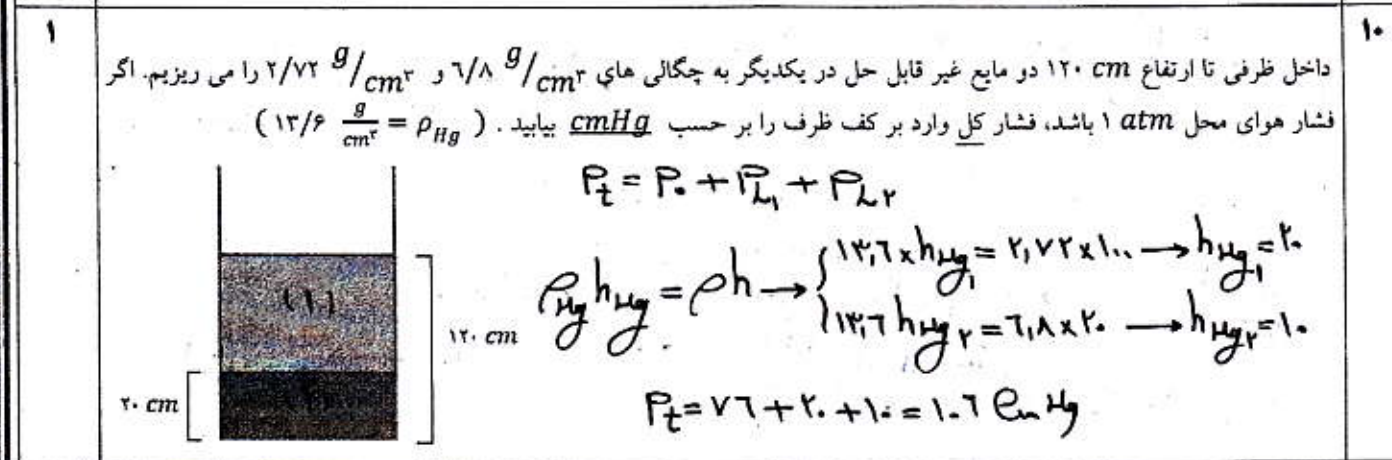 ۱۰
۱
داخل ظرفی تا ارتفاع ۱۲۰ cm دو مایع غیر قابل حل در یکدیگر به چگالی های ۶/۸ g/cm۳ و ۲/۷۲ g/cm۳ را می ریزیم. اگر
فشار هوای محل ۱ atm باشد، فشار کل وارد بر کف ظرف را بر حسب cmHg بیابید . ( ۱۳/۶ g/cm۳ = ρHg )
Pt = P۰ + PL۱ + PL۲
ρHg hHg = ρh → { ۱۳,۶ × hHg۱ = ۲,۷۲ × ۱۰۰ → hHg۱ = ۲۰
۱۳,۶ hHg۲ = ۶,۸ × ۲۰ → hHg۲ = ۱۰
(۱)
۱۲۰ cm
۲۰ cm
Pt = ۷۶ + ۲۰ + ۱۰ = ۱۰۶ cmHg